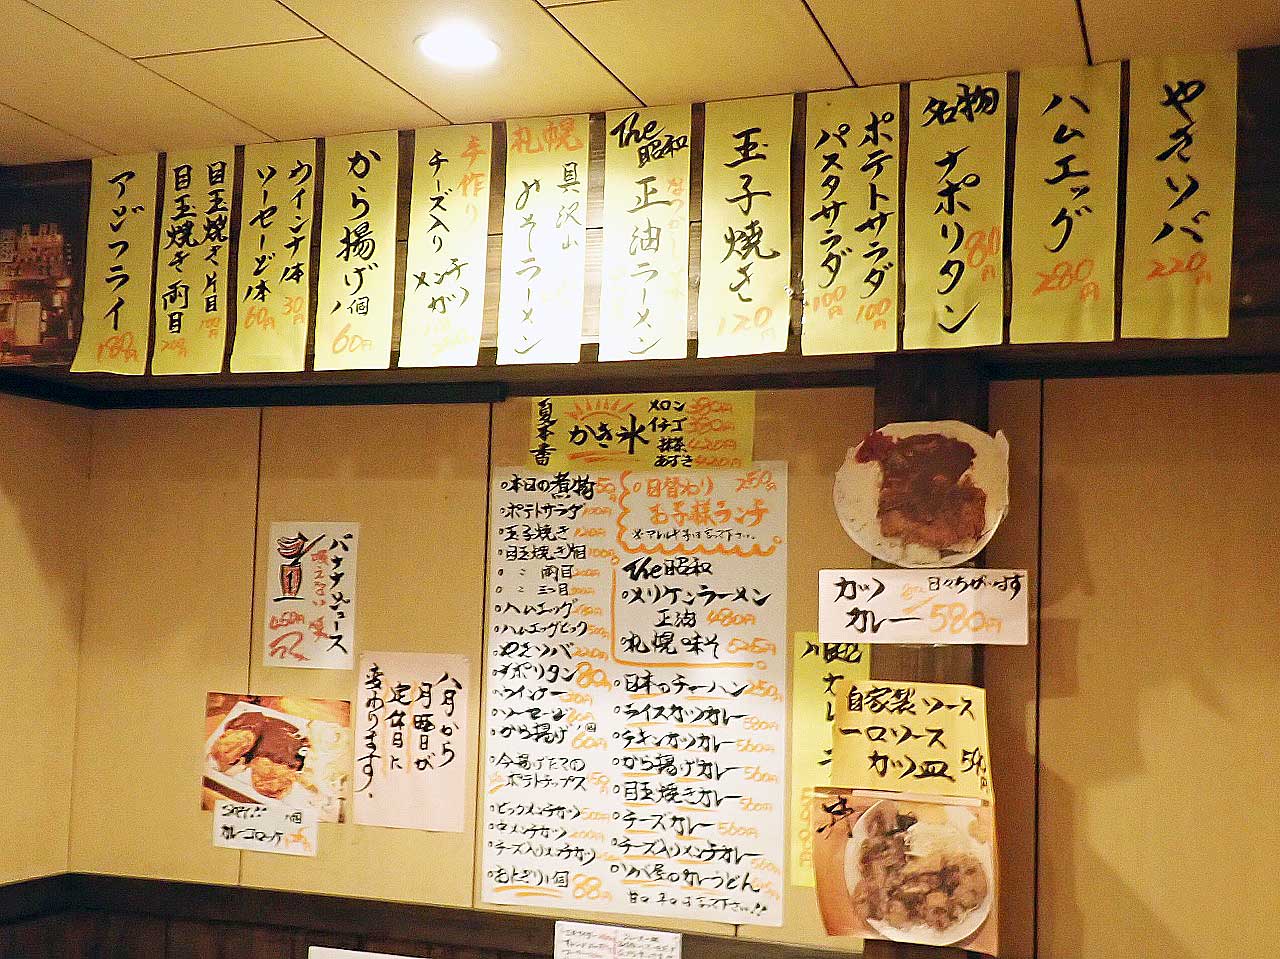 やきソバ
220円
ハムエッグ
280円
名物
ナポリタン
80円
ポテトサラダ
100円
パスタサラダ
100円
玉子焼き
120円
The
昭和
正油ラーメン
札幌
みそラーメン
手作り
チーズ入り
メンチ
カツ
から揚げ
1個
60円
ウインナ1本
30円
ソーセージ1本
60円
目玉焼き片目
100円
目玉焼き両目
200円
アジフライ
180円
かき氷
メロン 380円
イチゴ 380円
抹茶 420円
あずき 420円
本日の煮物
ポテトサラダ 100円
玉子焼き 120円
目玉焼き片目 100円
〃 両目 200円
〃 三つ目
ハムエッグ
ハムエッグビック
やきソバ 220円
ナポリタン 80円
ウインナー
ソーセージ
から揚げ1個 60円
今揚げたての
ポテトチップス
ビックメンチカツ
チーズ入りメンチカツ
1個 88円
日替わり 250円
お子様ランチ
The昭和
メリケンラーメン
正油 480円
札幌 味そ 525円
日本のチャーハン 250円
ライスカツカレー
チキンカツカレー 560円
から揚げカレー 560円
目玉焼きカレー 560円
チーズカレー 560円
チーズ入りメンチカレー
ソバ屋のカレーうどん
カツ
カレー 580円
自家製ソース
一口ソース
カツ皿
バナナジュース
八月から
月曜日が
定休日に
変わります。
カレーコロッケ